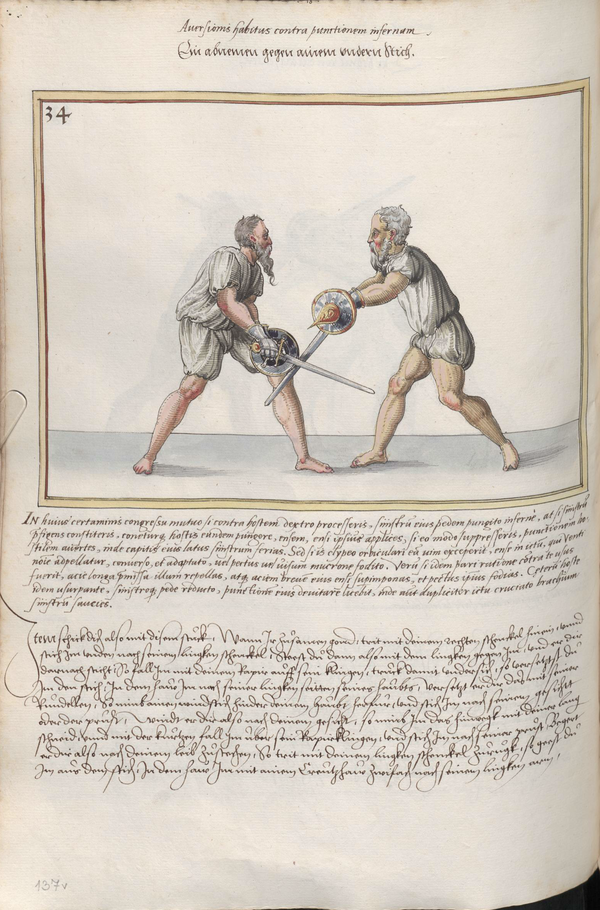 Aversionis habitus contra punctionem infernam.
Ein abnemen gegen ainem undern Stich.
34
IN huius certaminis congressu mutuo si contra hostem dextro processeris, sinistrū eius pedem pungito infernè, at si sinistrū
pstiterit, coneturq hostis eundem pungere, ensem, ensi ipsius applices, si eo modo suppresseris, punctionem ho-
stilem avertes, inde capitis eius latus sinistrum ferias. Sed si is clypeo orbiculari eā vim exceperit, ense in ictu, qui venti
noīe adpellatur, converso, et adaptato, vel pectus vel visum mucrone fodito. Verū si idem pari ratione cōtra te usus
fuerit, acie longa pmissa illum repellas, atq aciem brevē eius ensi supimponas, et pectus ipsius fodias. Ceterū hoste
idem usurpante, sinistroq pede reducto, punctionē eius devitare licebit, inde aut dupliciter ictu cruciato brachium
sinistrū saucies.
Item schick dich also mit disem stuck, Wann Ir zusamen gand, trit mit deinem rechten schenckel hinein, unnd
stich Im unden nach seinem lingken schenckel, Steest du dann also mit dem lingken gegen Im, und er dir
darnach sticht, So fall Im mit deinem Rapier auff sein klingen, truck damit undersich, so versetzest du
Im den stich, In dem haw Im nach seiner lingken seitten seines haubts, Versetzt er dir das mit seiner
Rundellen, So windt am windt hinder deinem haubt herfür, und stich Im nach seinem gesicht
oder der prust, windt er dir also nach deinem gesicht, so nimb Im das hinweck mit deiner lang
schneid, und mit der kurtzen fall Im uber sein Rapier klingen, und stich Im nach seiner prust, Begert
er dir also nach deinem leib zustechen, So trit mit deinem lingken schenckel zuruck, so geest du
Im aus dem stich, In dem haw Im mit ainem Creutzhaw zwifach nach seinem lingken arm,
137v